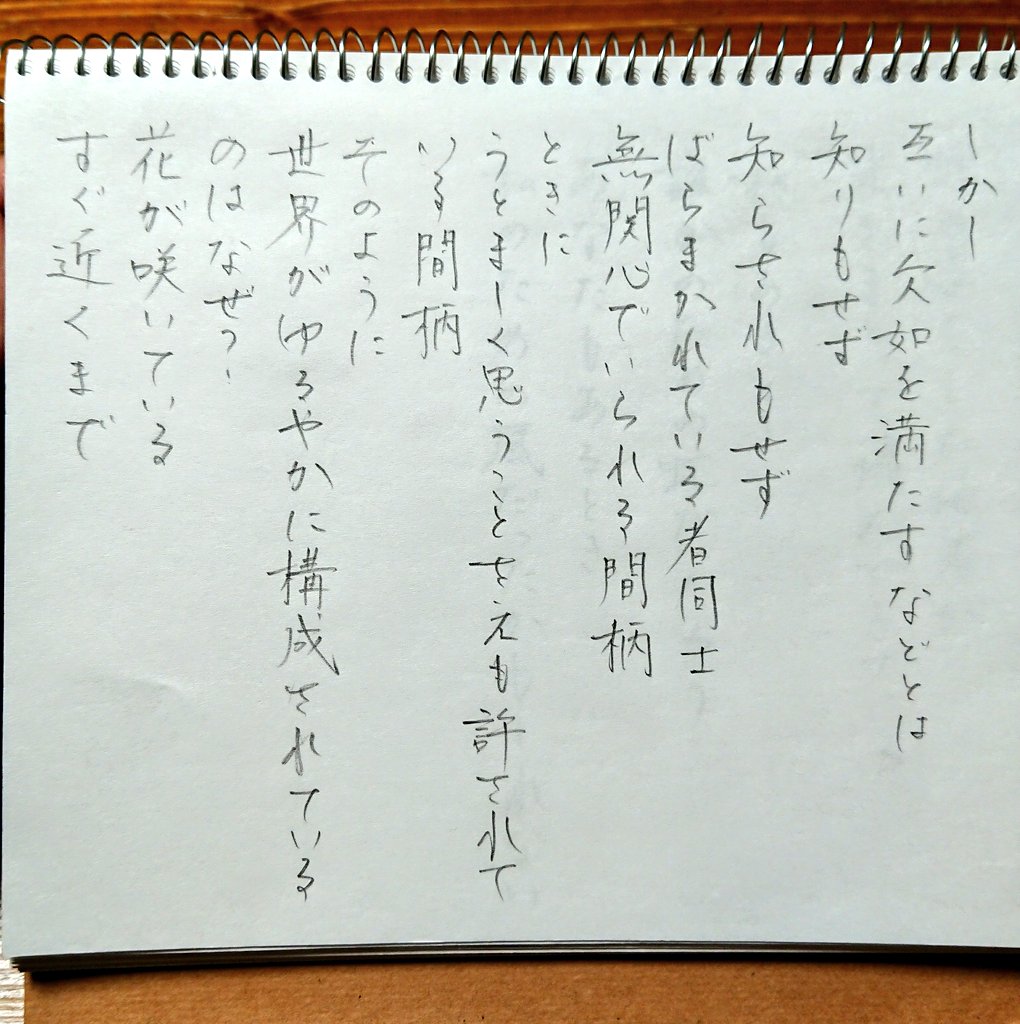 しかし
互いに欠如を満たすなどとは
知りもせず
知らされもせず
ばらまかれている者同士
無関心でいられる間柄
ときに
うとましく思うことさえも許されて
いる間柄
そのように
世界がゆるやかに構成されている
のはなぜ?
花が咲いている
すぐ近くまで